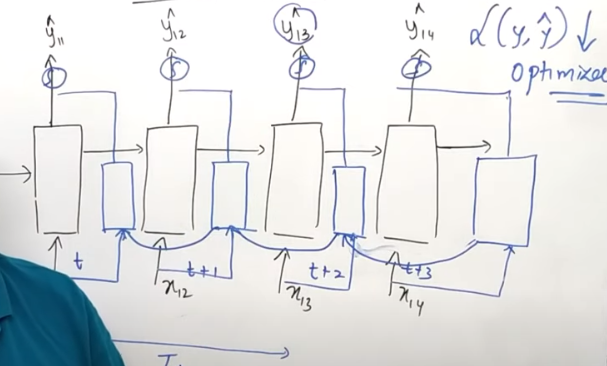 ŷ₁₁ ŷ₁₂ ŷ₁₃ ŷ₁₄ L(y, ŷ) ↓
Optimizer
t t+1 t+2 t+3
x₁₂ x₁₃ x₁₄